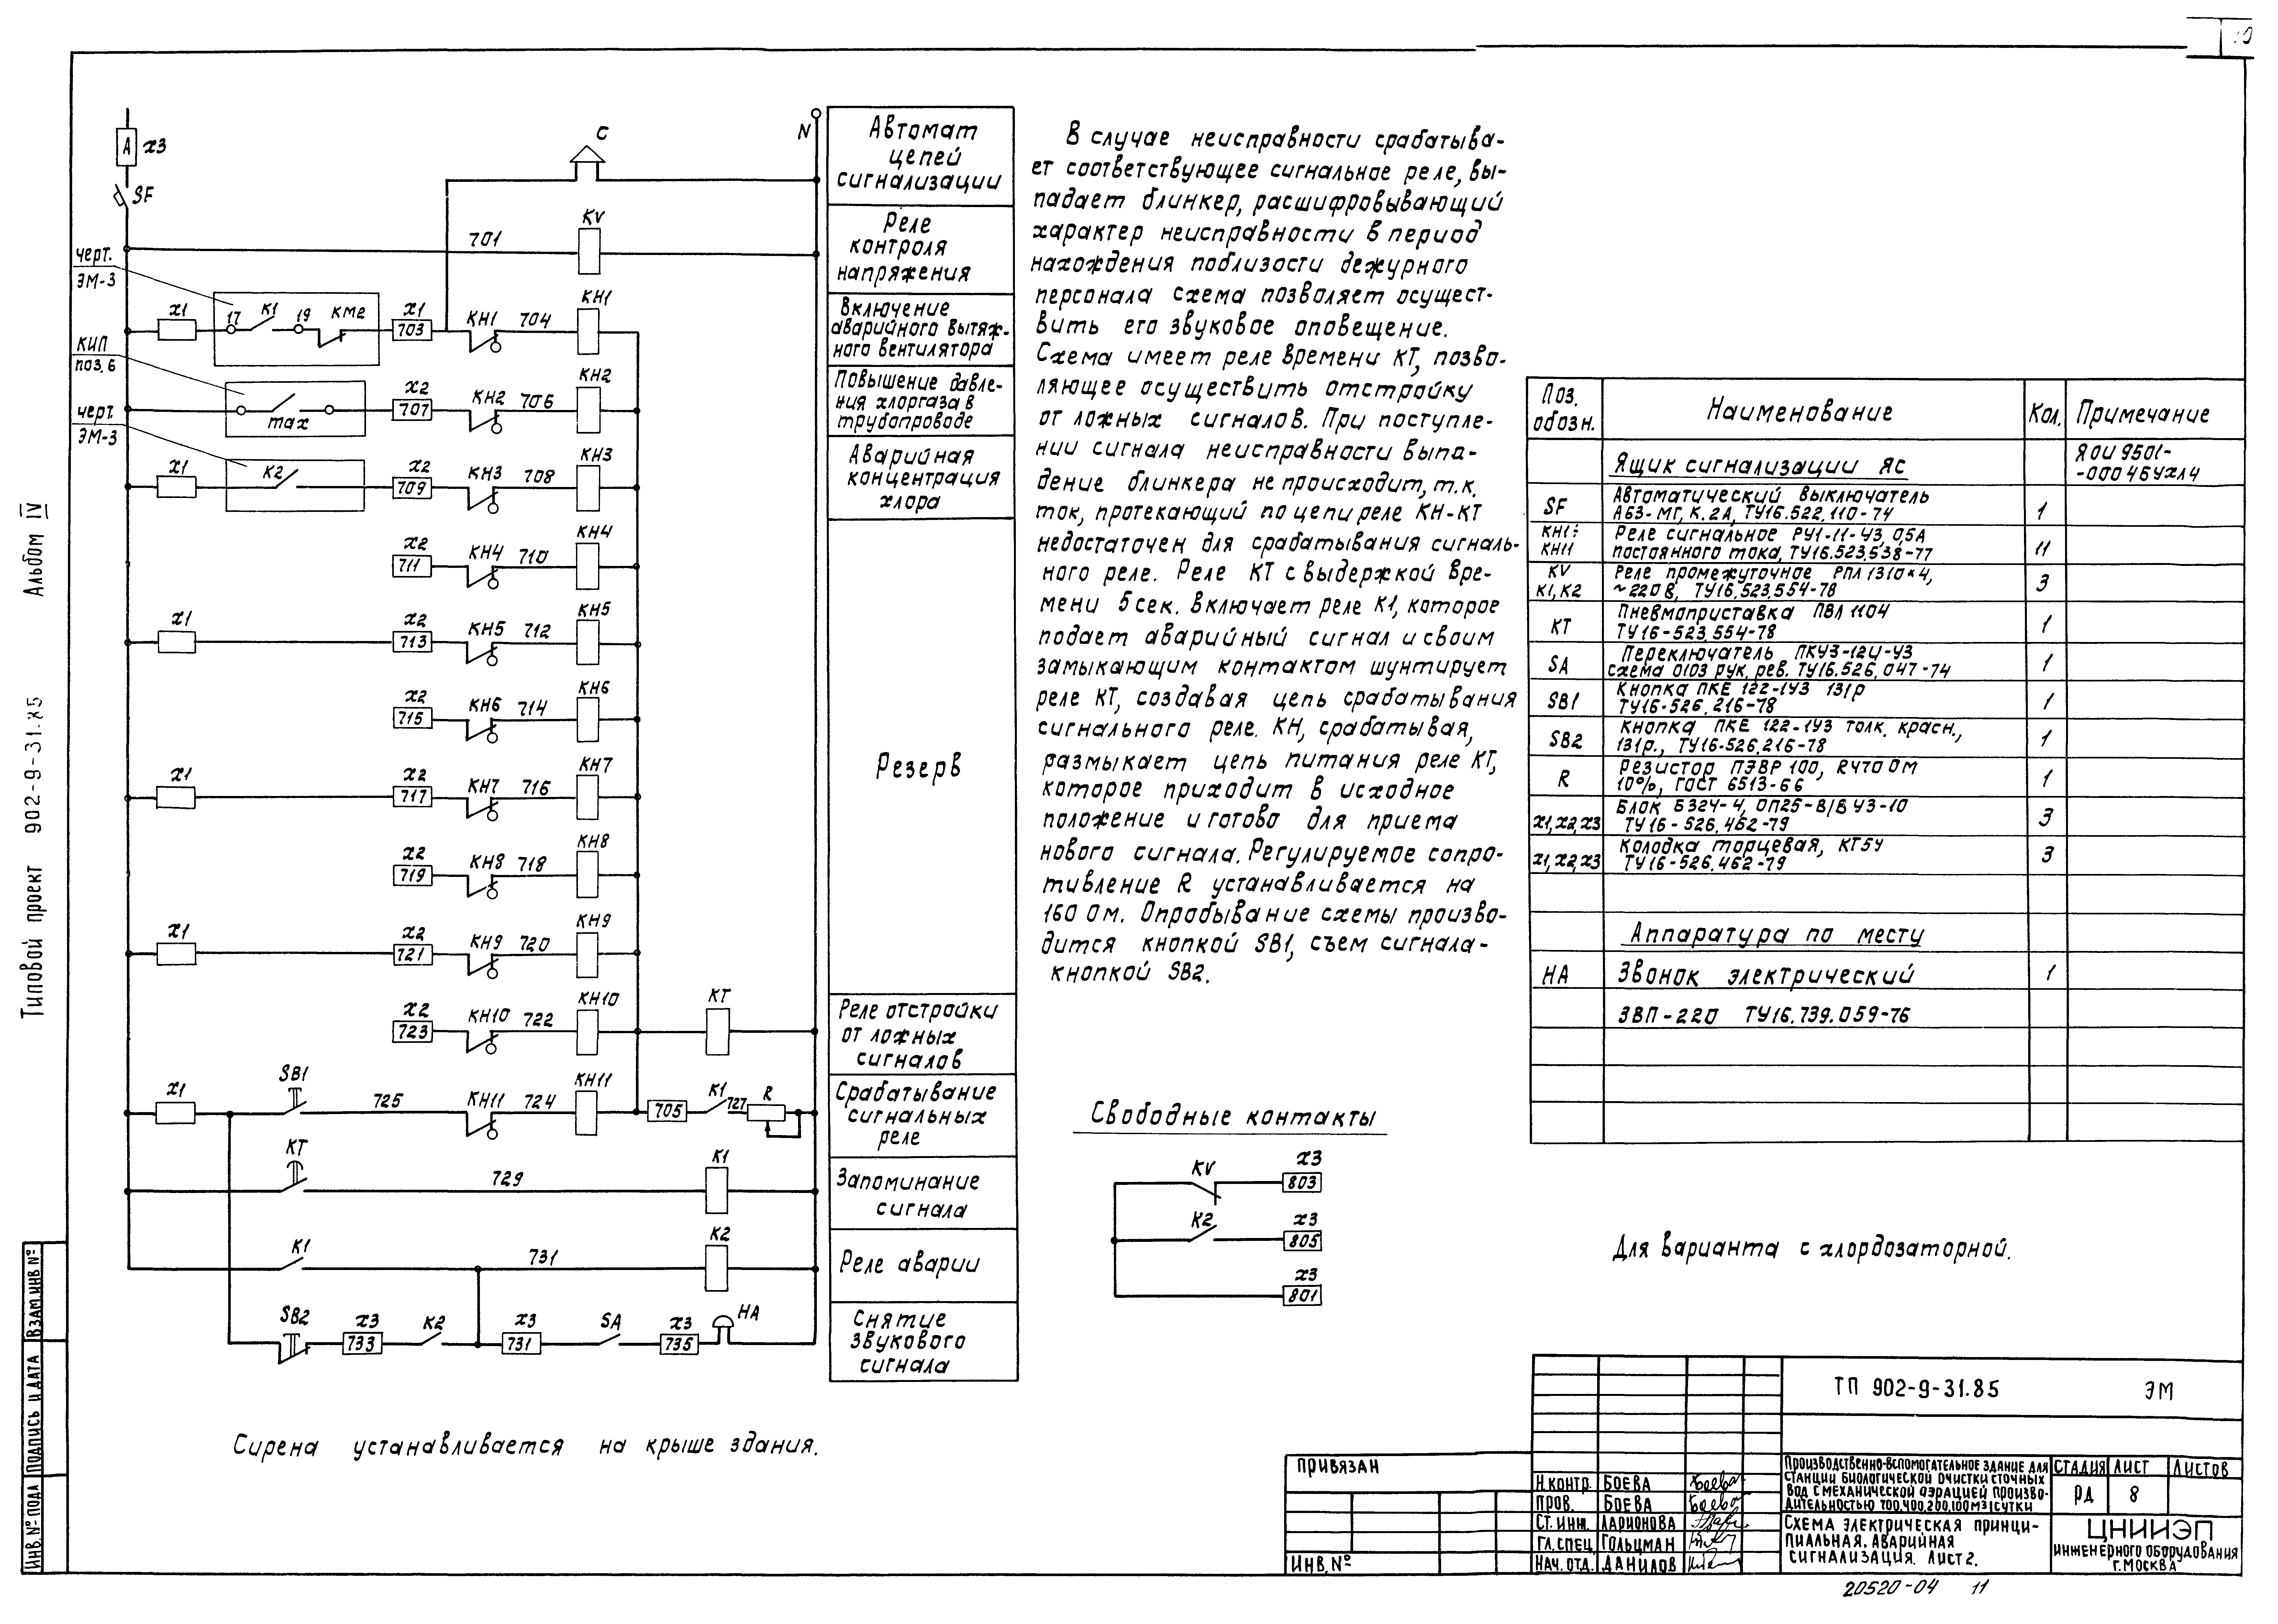 10
Типовой проект 902-9-31.85 Альбом IV
А х3
SF
С
N
701
KV
черт.
ЭМ-3
х1
17
К1
19
КМ2
х1
703
КН1
704
КН1
КИП
поз.6
max
х2
707
КН2
706
КН2
черт.
ЭМ-3
х1
К2
х2
709
КН3
708
КН3
х2
711
КН4
710
КН4
х1
х2
713
КН5
712
КН5
х2
715
КН6
714
КН6
х1
х2
717
КН7
716
КН7
х2
719
КН8
718
КН8
х1
х2
721
КН9
720
КН9
х2
723
КН10
722
КН10
КТ
х1
SB1
725
КН11
724
КН11
705
К1
727
R
КТ
729
К1
К1
731
К2
SB2
х3
733
К2
х3
731
SA
х3
735
НА
Автомат
цепей
сигнализации
Реле
контроля
напряжения
Включение
аварийного вытяж-
ного вентилятора
Повышение давле-
ния хлоргаза в
трубопроводе
Аварийная
концентрация
хлора
Резерв
Реле отстройки
от ложных
сигналов
Срабатывание
сигнальных
реле
Запоминание
сигнала
Реле аварии
Снятие
звукового
сигнала
Сирена устанавливается на крыше здания.
В случае неисправности срабатыва-
ет соответствующее сигнальное реле, вы-
падает блинкер, расшифровывающий
характер неисправности в период
нахождения поблизости дежурного
персонала схема позволяет осущест-
вить его звуковое оповещение.
Схема имеет реле времени КТ, позво-
ляющее осуществить отстройку
от ложных сигналов. При поступле-
нии сигнала неисправности выпа-
дение блинкера не происходит, т.к.
ток, протекающий по цепи реле КН-КТ
недостаточен для срабатывания сигналь-
ного реле. Реле КТ с выдержкой вре-
мени 5 сек. включает реле К1, которое
подает аварийный сигнал и своим
замыкающим контактом шунтирует
реле КТ, создавая цепь срабатывания
сигнального реле. КН, срабатывая,
размыкает цепь питания реле КТ,
которое приходит в исходное
положение и готово для приема
нового сигнала. Регулируемое сопро-
тивление R устанавливается на
160 Ом. Опробывание схемы произво-
дится кнопкой SB1, съем сигнала-
кнопкой SB2.
Свободные контакты
KV
х3
803
К2
х3
805
х3
801
Поз. обозн. Наименование Кол. Примечание
Ящик сигнализации ЯС ЯОИ 9501-
-0004БУХЛ4
SF Автоматический выключатель
А63-МГ, К.2А, ТУ16.522.110-74 1
КН1÷ КН11 Реле сигнальное РУ1-11-У3, 0,5А
постоянного тока, ТУ16.523.538-77 11
KV К1, К2 Реле промежуточное РПЛ 1310×4,
~220В, ТУ16.523.554-78 3
КТ Пневмоприставка ПВЛ 1104
ТУ16-523.554-78 1
SA Переключатель ПКУ3-12Ц-У3
схема 0103 рук. рев. ТУ16.526.047-74 1
SB1 Кнопка ПКЕ 122-1У3 131р
ТУ16-526.216-78 1
SB2 Кнопка ПКЕ 122-1У3 толк. красн.,
131р., ТУ16-526.216-78 1
R Резистор ПЭВР 100, R470 Ом
10%, ГОСТ 6513-66 1
х1, х2, х3 Блок БЗ24-4, ОП25-В/В У3-10
ТУ16-526.462-79 3
х1, х2, х3 Колодка торцевая, КТ5У
ТУ16-526.462-79 3
Аппаратура по месту
НА Звонок электрический 1
ЗВП-220 ТУ16.739.059-76
Для варианта с хлордозаторной.
ТП 902-9-31.85 ЭМ
Привязан
Инв.№
Н.контр. Боева
Пров. Боева
Ст. инж. Ларионова
Гл.спец. Гольцман
Нач.отд. Данилов
Производственно-вспомогательное здание для
станции биологической очистки сточных
вод с механической аэрацией произво-
дительностью 700,400,200,100м3/сутки
Стадия Лист Листов
РД 8
Схема электрическая принци-
пиальная. Аварийная
сигнализация. Лист 2.
ЦНИИЭП
инженерного оборудования
г.Москва
20520-04 11
Инв.№ подл Подпись и дата Взам.инв №